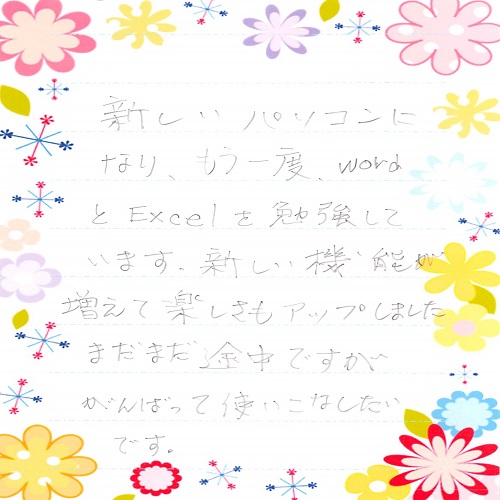 新しいパソコンに
なり、もう一度、word
とExcelを勉強して
います。新しい機能が
増えて楽しさもアップしました
まだまだ途中ですが
がんばって使いこなしたい
です。